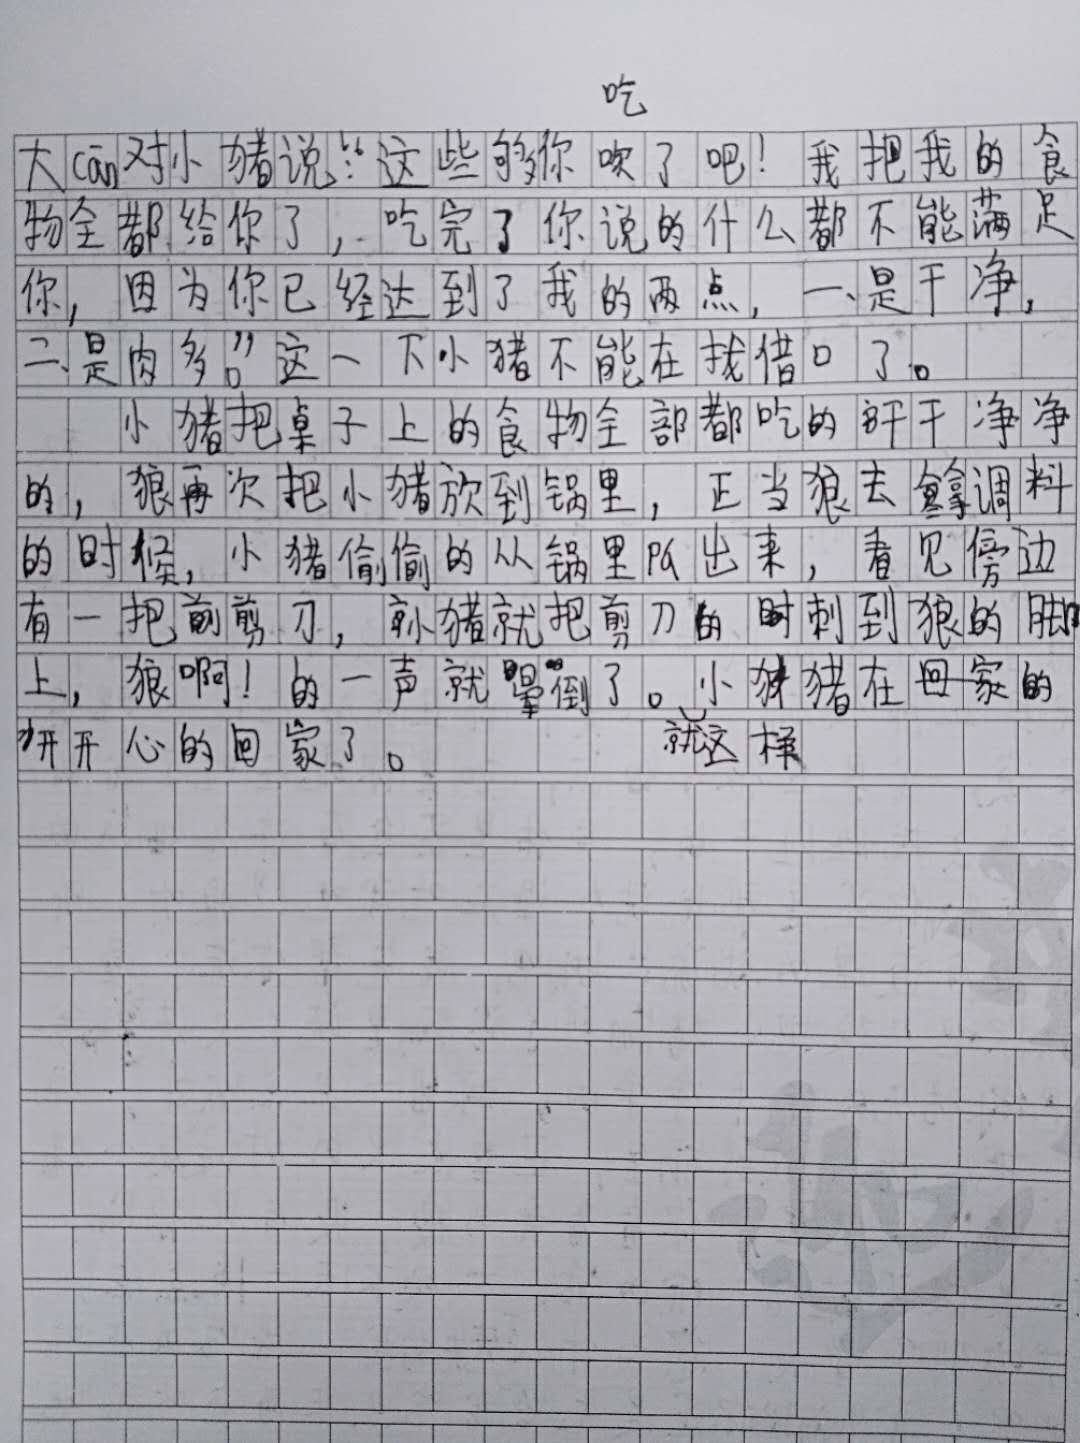 吃
大cān对小猪说:“这些够你吹了吧!我把我的食
物全都给你了,吃完了你说的什么都不能满足
你,因为你已经达到了我的两点,一、是干净,
二、是肉多。”这一下小猪不能在找借口了。
小猪把桌子上的食物全部都吃的干干净净
的,狼再次把小猪放到锅里,正当狼去拿调料
的时候,小猪偷偷的从锅里爬出来,看见傍边
有一把剪刀,小猪就把剪刀的时刺到狼的脚
上,狼啊!的一声就晕倒了。小猪在回家的
开开心的回家了。 就这样